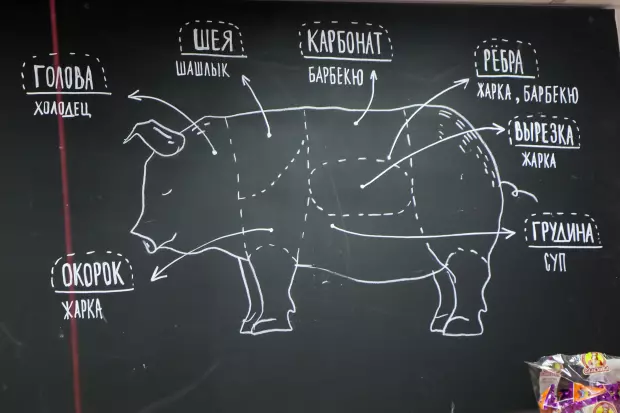 ГОЛОВА
ХОЛОДЕЦ
ШЕЯ
ШАШЛЫК
КАРБОНАТ
БАРБЕКЮ
РЁБРА
ЖАРКА, БАРБЕКЮ
ВЫРЕЗКА
ЖАРКА
ГРУДИНА
СУП
ОКОРОК
ЖАРКА